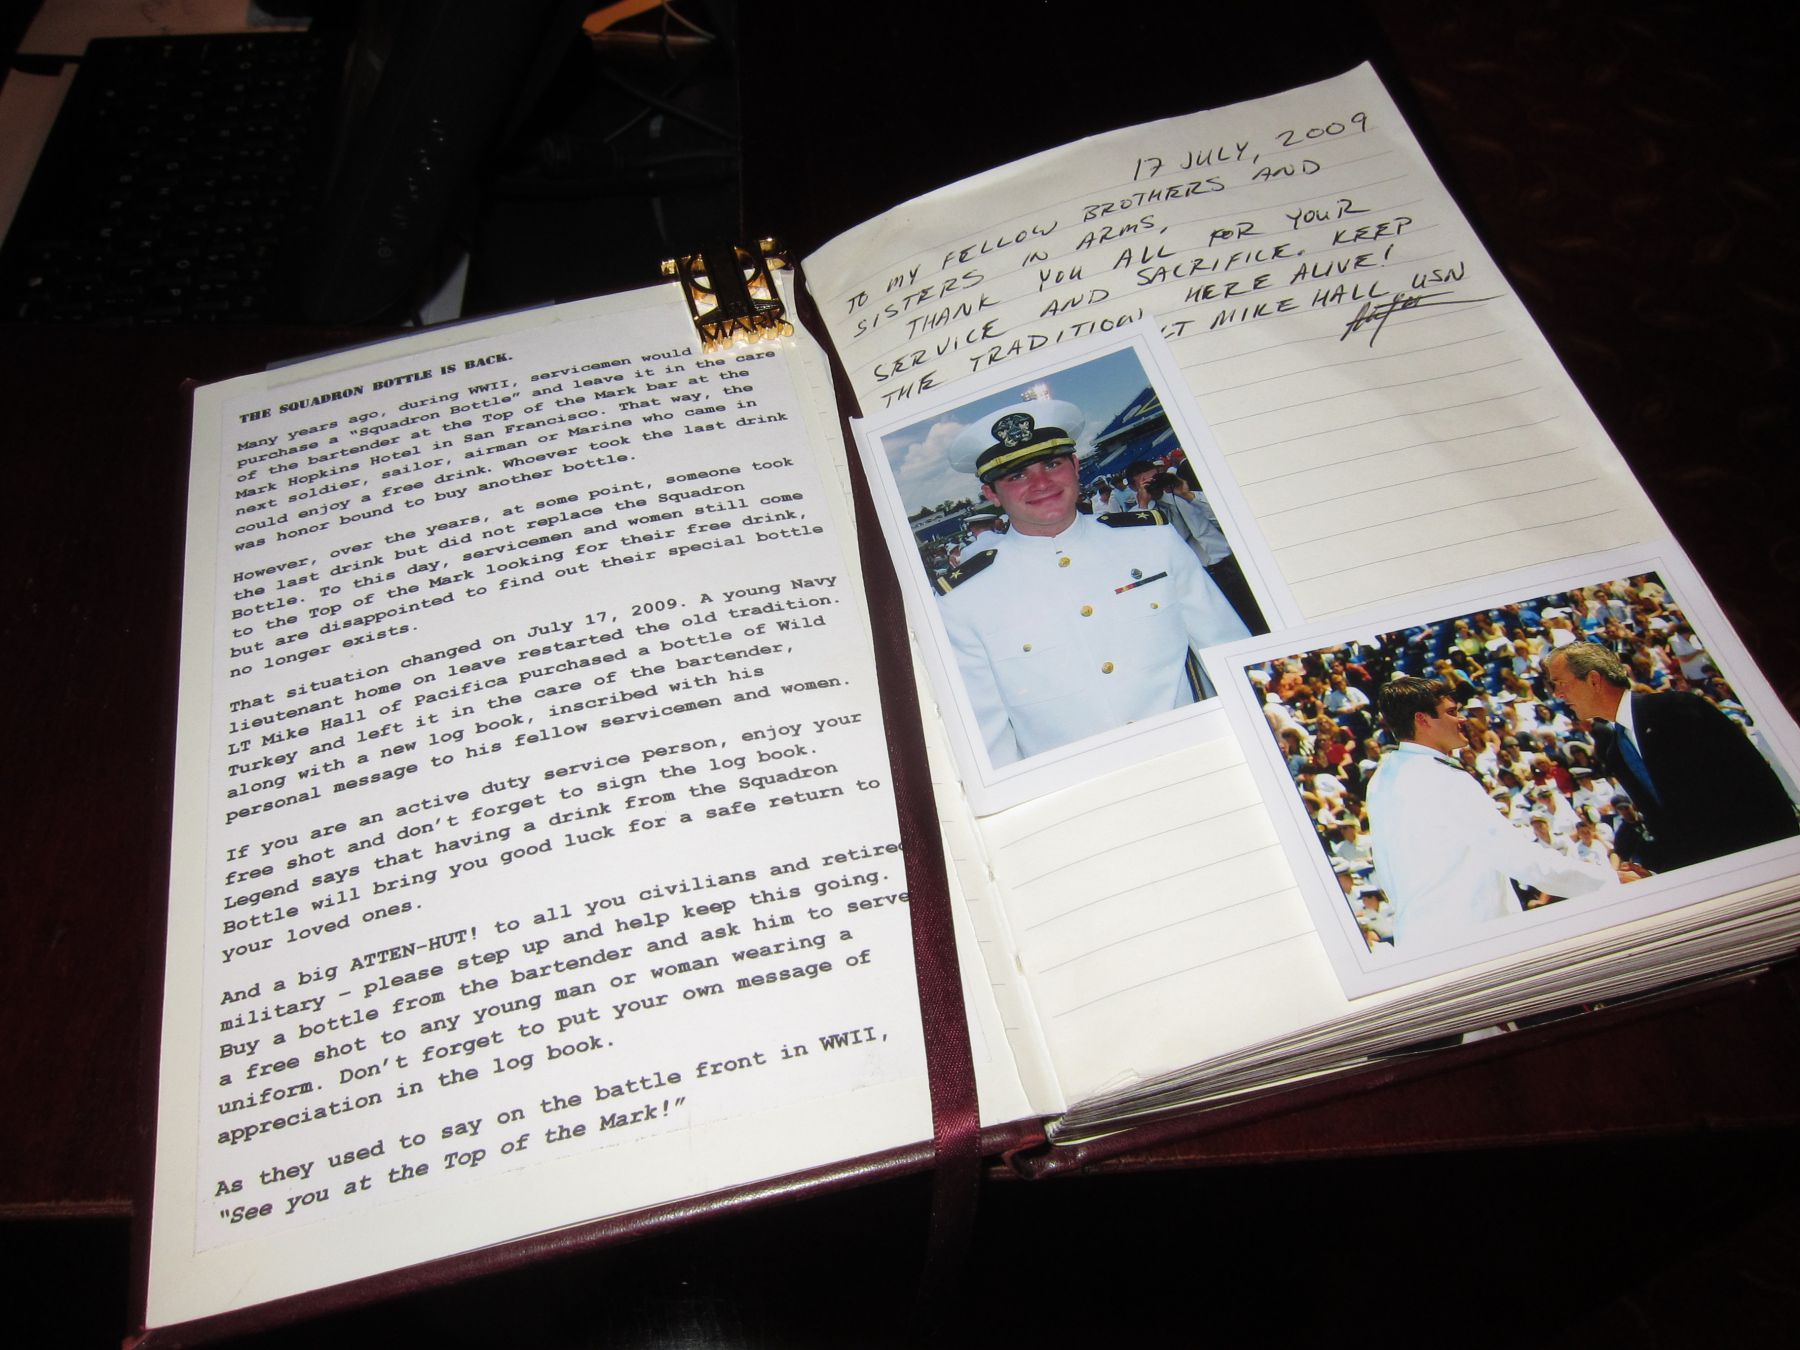 THE SQUADRON BOTTLE IS BACK.
Many years ago, during WWII, servicemen would
purchase a "Squadron Bottle" and leave it in the care
of the bartender at the Top of the Mark bar at the
Mark Hopkins Hotel in San Francisco. That way, the
next soldier, sailor, airman or Marine who came in
could enjoy a free drink. Whoever took the last drink
was honor bound to buy another bottle.
However, over the years, at some point, someone took
the last drink but did not replace the Squadron
Bottle. To this day, servicemen and women still come
to the Top of the Mark looking for their free drink,
but are disappointed to find out their special bottle
no longer exists.
That situation changed on July 17, 2009. A young Navy
lieutenant home on leave restarted the old tradition.
LT Mike Hall of Pacifica purchased a bottle of Wild
Turkey and left it in the care of the bartender,
along with a new log book, inscribed with his
personal message to his fellow servicemen and women.
If you are an active duty service person, enjoy your
free shot and don't forget to sign the log book.
Legend says that having a drink from the Squadron
Bottle will bring you good luck for a safe return to
your loved ones.
And a big ATTEN-HUT! to all you civilians and retired
military – please step up and help keep this going.
Buy a bottle from the bartender and ask him to serve
a free shot to any young man or woman wearing a
uniform. Don't forget to put your own message of
appreciation in the log book.
As they used to say on the battle front in WWII,
"See you at the Top of the Mark!"
MARK
17 JULY, 2009
TO MY FELLOW BROTHERS AND
SISTERS IN ARMS,
THANK YOU ALL FOR YOUR
SERVICE AND SACRIFICE. KEEP
THE TRADITION HERE ALIVE!
LT MIKE HALL USN